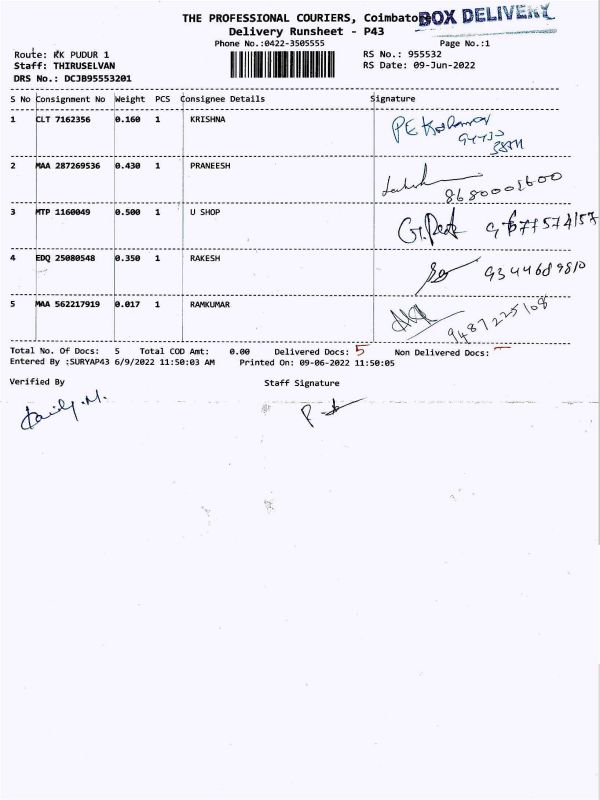 THE PROFESSIONAL COURIERS, Coimbatore
BOX DELIVERY
Delivery Runsheet - P43
Phone No.:0422-3505555 Page No.:1
Route: KK PUDUR 1 RS No.: 955532
Staff: THIRUSELVAN RS Date: 09-Jun-2022
DRS No.: DCJB95553201
S No Consignment No Weight PCS Consignee Details Signature
1 CLT 7162356 0.160 1 KRISHNA
2 MAA 287269536 0.430 1 PRANEESH
3 MTP 1160049 0.500 1 U SHOP
4 EDQ 25080548 0.350 1 RAKESH 9344689810
5 MAA 562217919 0.017 1 RAMKUMAR 9487225108
Total No. Of Docs: 5 Total COD Amt: 0.00 Delivered Docs: 5 Non Delivered Docs: —
Entered By :SURYAP43 6/9/2022 11:50:03 AM Printed On: 09-06-2022 11:50:05
Verified By Staff Signature